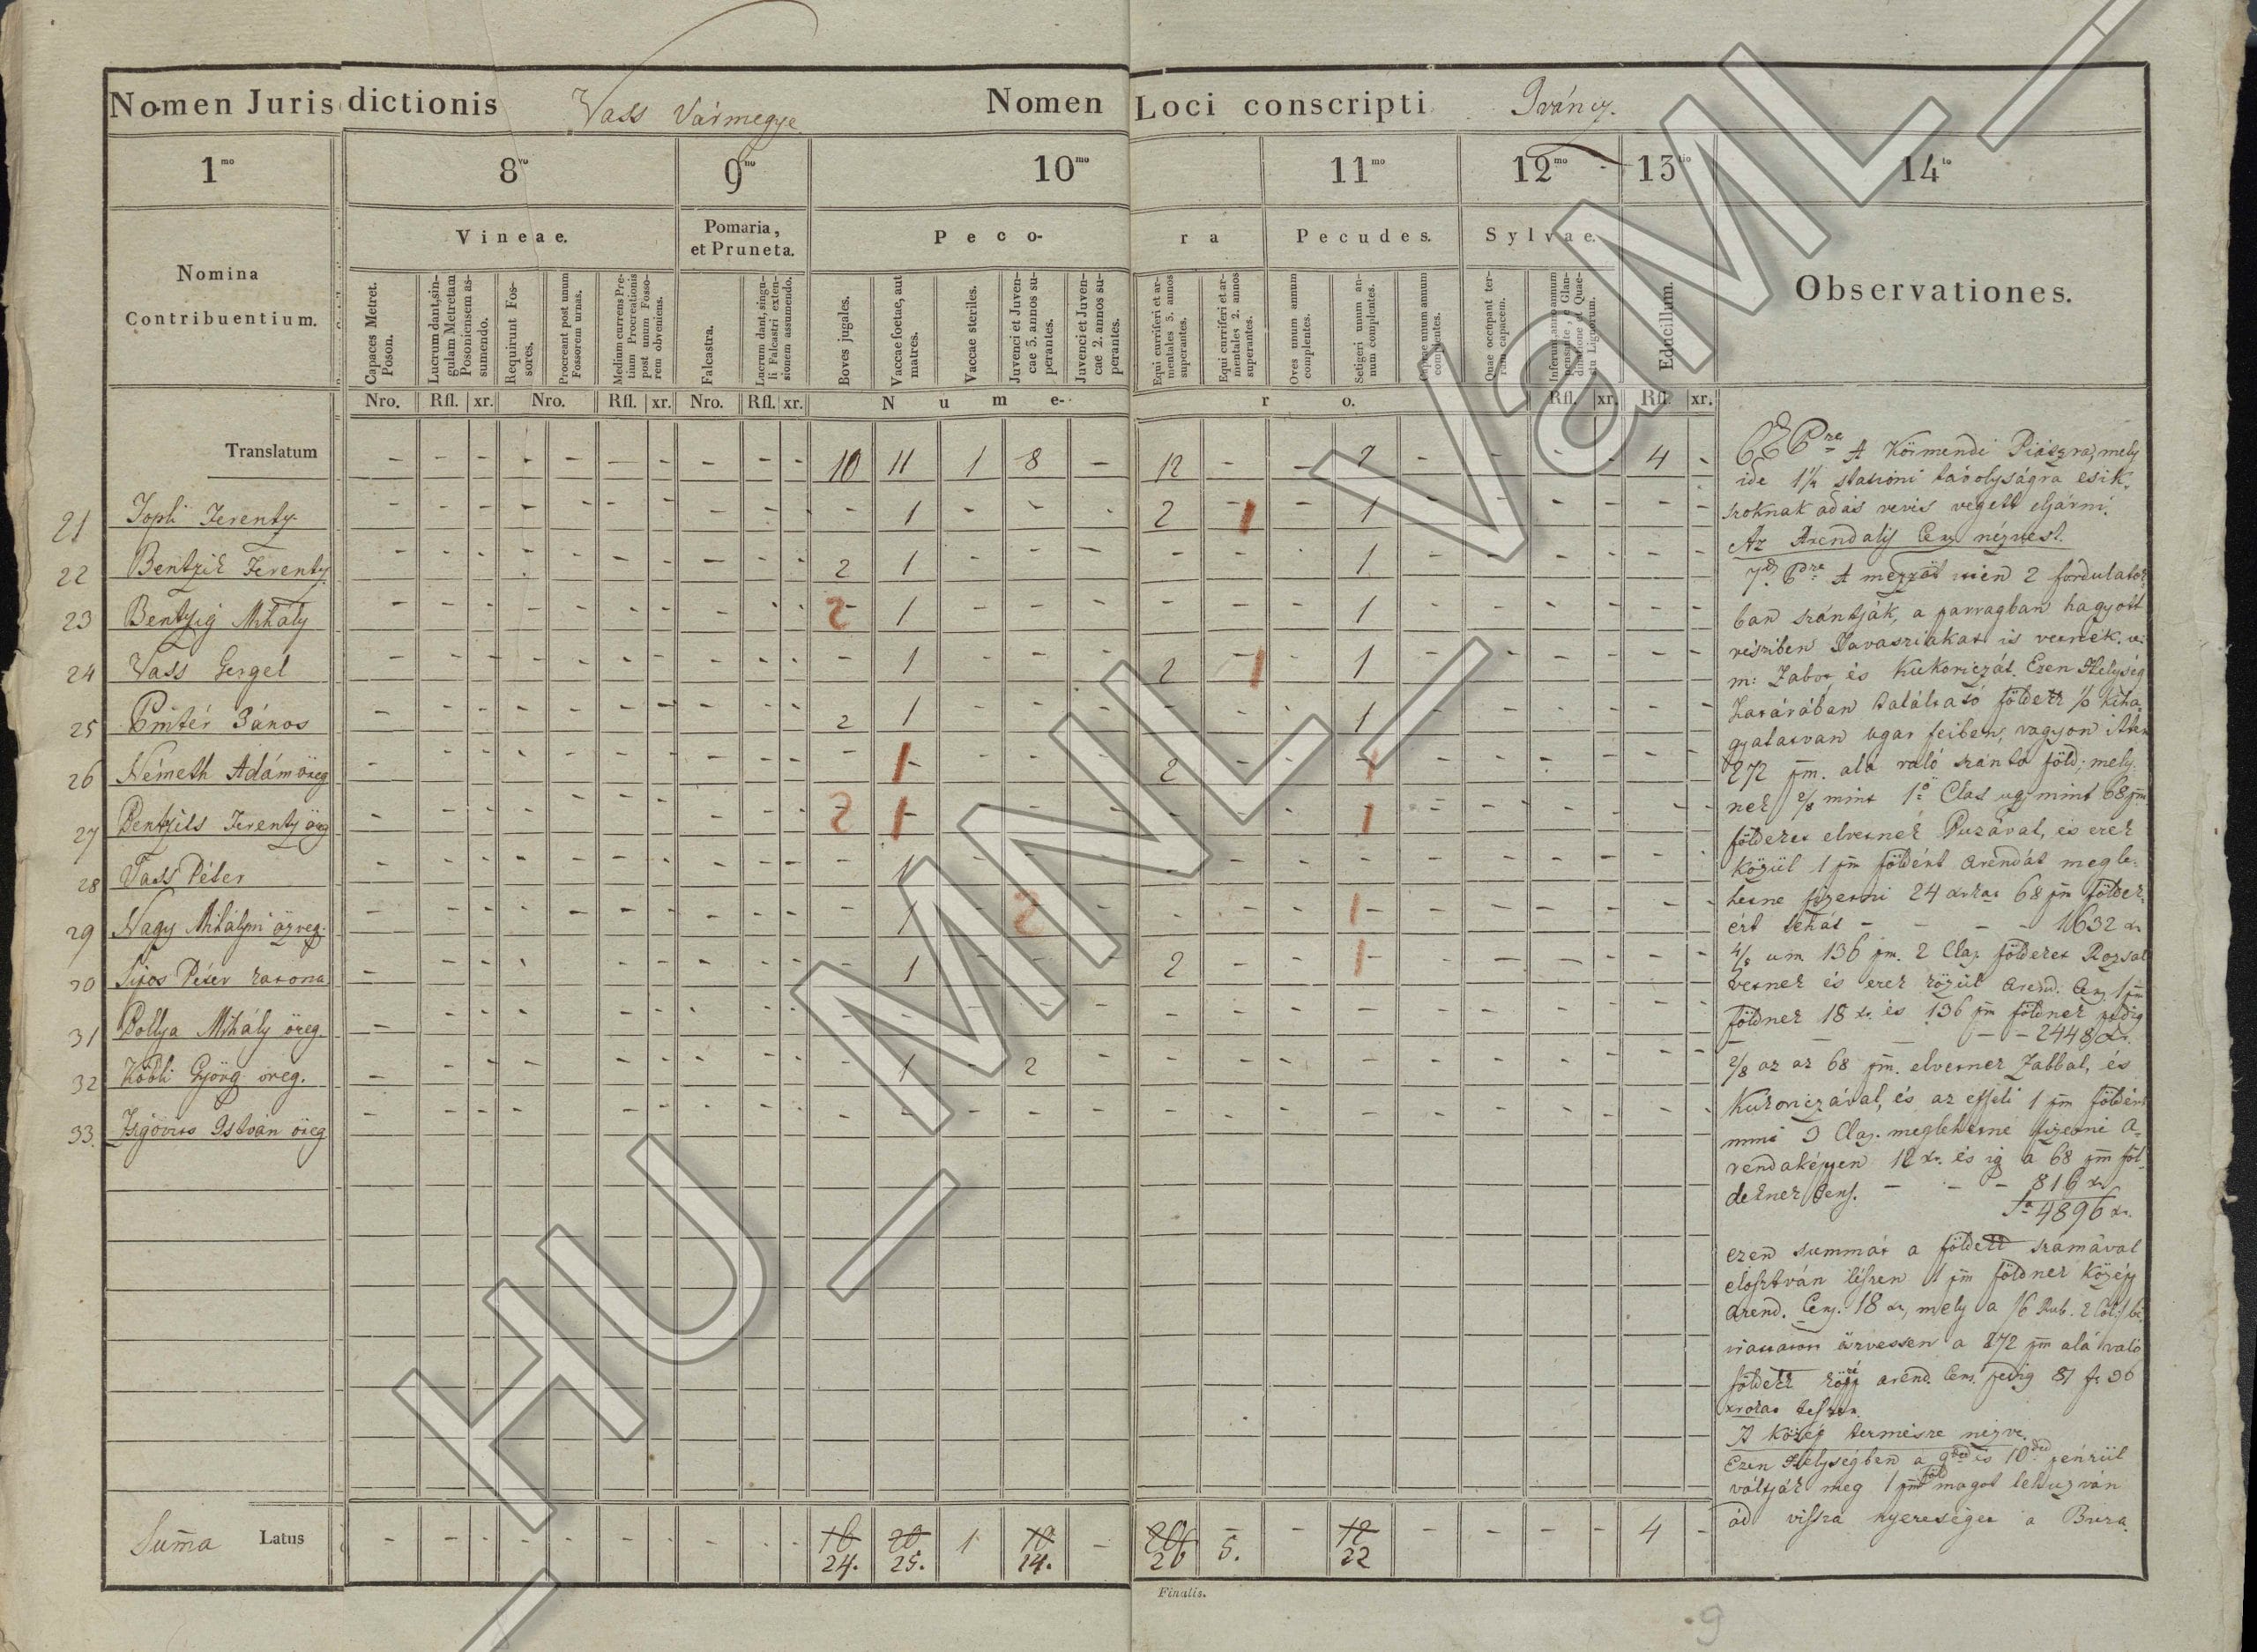 Nomen Jurisdictionis Vass Vármegye Nomen Loci conscripti Iváncz.
1mo 8vo 9no 10mo 11mo 12mo 13tio 14to
Nomina Contribuentium.
Vineae.
Pomaria, et Pruneta.
Peco-
ra
Pecudes.
Sylvae.
Educillum.
Observationes.
Capaces Metret. Poson.
Lucrum dant, singulam Metretam Posoniensem assumendo.
Requirunt Fossores.
Procreant post unum Fossorem urnas.
Medium currens Pretium Procreationis post unum Fossorem obveniens.
Falcastra.
Lucrum dant, singuli Falcastri extensionem assumendo.
Boves jugales.
Vaccae foetae, aut matres.
Vaccae steriles.
Juvenci et Juvencae 3. annos superantes.
Juvenci et Juvencae 2. annos superantes.
Equi curriferi et armentales 3. annos superantes.
Equi curriferi et armentales 2. annos superantes.
Oves unum annum complentes.
Setigeri unum annum complentes.
Caprae unum annum complentes.
Quae occupant terram capacem.
Nro. Rfl. xr. Nro. Rfl. xr. Nro. Rfl. xr. Nume- ro. Rfl. xr. Rfl. xr.
Translatum - - - - - - - - - - 10 11 1 8 - 12 - - 7 - - - - 4 -
21 Jopli Ferentz 1 2 1 1
22 Bentzik Ferentz 2 1 1
23 Bentzig Mihály 2 1 1
24 Vass Gergel 1 2 1 1
25 Pintér János 2 1 1
26 Németh Adám öreg 1 2 1
27 Bentzils Ferentz öreg 2 1 1
28 Vass Péter 1
29 Nagy Mihályni özveg. 1 2 1
30 Sipos Péter katona 1 2 1
31 Dollya Mihály öreg.
32 Köbli Györg öreg. 1 2
33. István öreg
Summa Latus 24. 25. 1 14. - 26 5. - 22 - - - - 4 -
A Körmendi Piátzra, mely
ide 1¼ stationi távolyságra esik,
szoknak adás vevés végett eljárni.
Az Arendalis Cens. nézvest.
7d. 6dre A mezzöt mien 2 fordulatok-
ban szántják, a parragban hagyott
részben Tavasziakat is vetnek. u:
m: Zabot és Kukoriczát. Ezen Helység
Határában Található földek 1/6 kiha-
gyatatván ugar feiben, vagyon
272 pm. alá való szántó föld; mely-
nek 2/8 mint 1ő Clas. ugymint 68 pm
földeket elvetnek Buzával, és ezek
közül 1 pm földért arendát megle-
hetne fizetni 24 xrkat 68 pm földek-
ért tehát - - - - 1632 xr
4/8 um 136 pm. 2 Clas. földeket Rozsal
vetnek és ezek közül Arend. Cens. 1 pm
földnek 18 xr. és 136 pm földnek pedig
- - - - 2448 xr.
2/8 az az 68 pm. elvetnek Zabbal, és
Kukoriczával, és az efféli 1 pm földért
mint 3 Clas. meglehetne fizetni a-
rendaképpen 12 xr. és ig a 68 pm föl-
deknek Cens. - - - 816 xr
Sa 4896 xr.
ezen summát a földek számával
elosztván lészen 1 pm földnek közép
Arend. Cens. 18 xr, mely a
a 272 pm alá való
földek közé arend. Cens. pedig 81 f. 36
xrokat teszen.
A közép termésre nézve.
Ezen Helységben a 9ded és 10ded pénzül
váltják meg 1 pm föld magot lehuzván
ád vissza nyereséget a Buza.
Finalis.
9
_HU_MNL_VaML_